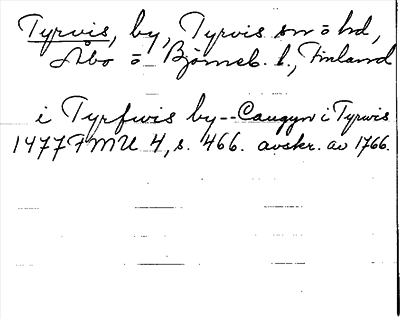 Tyrvis, by, Tyrvis sn o hd,
Åbo o Björneb. l., Finland
i Tyrfwis by -- Caugyn i Tyrwis
1477 FMU 4, s. 466. avskr. av 1766.